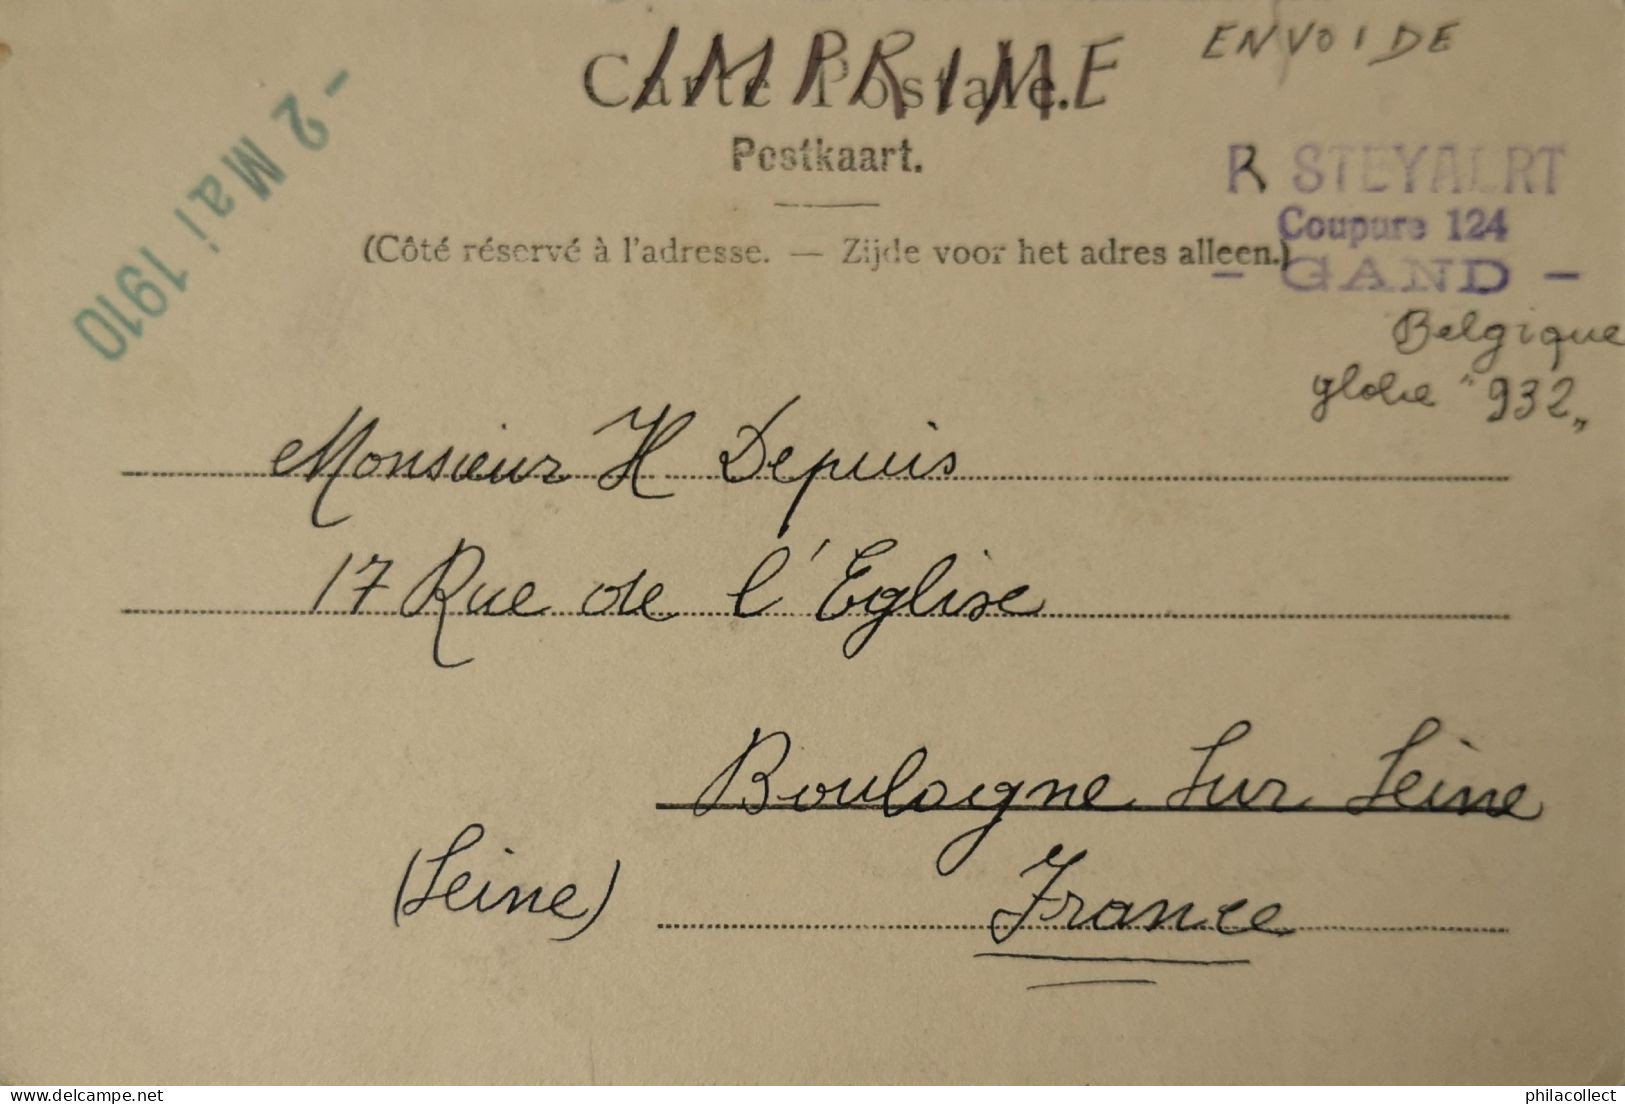 Carte Postale.
IMPRIME
ENVOI DE
Postkaart.
- 2 Mai 1910
R STEYAERT
Coupure 124
- GAND -
(Côté réservé à l'adresse. — Zijde voor het adres alleen.)
Belgique
globe "932"
Monsieur H Depuis
17 Rue de l'Eglise
Boulogne Sur Seine
(Seine)
France
www.delcampe.net
philacollect